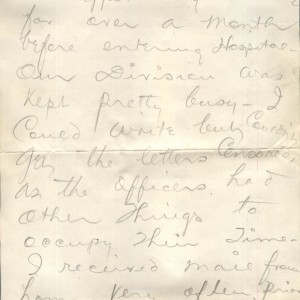 for over a month
before entering Hospital -
Our Division was
Kept pretty busy - I
Could write but Couldn't
get the letters Censored
as the Officers had
Other Things to
occupy Thier Time -
I received mail from
home very often, prior